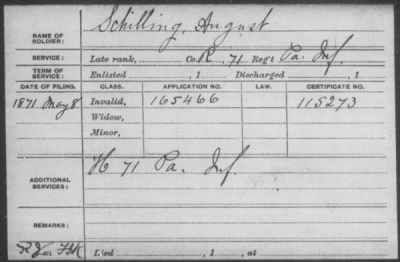 NAME OF SOLDIER: Schilling, August
SERVICE: Late rank, Co. K, 71 Reg't Pa. Inf.
TERM OF SERVICE: Enlisted , 1 Discharged , 1
DATE OF FILING. CLASS. APPLICATION NO. LAW. CERTIFICATE NO.
1871 May 8 Invalid, 165466 115273
Widow,
Minor,
ADDITIONAL SERVICES: H 71 Pa. Inf.
REMARKS:
Died , 1 , at